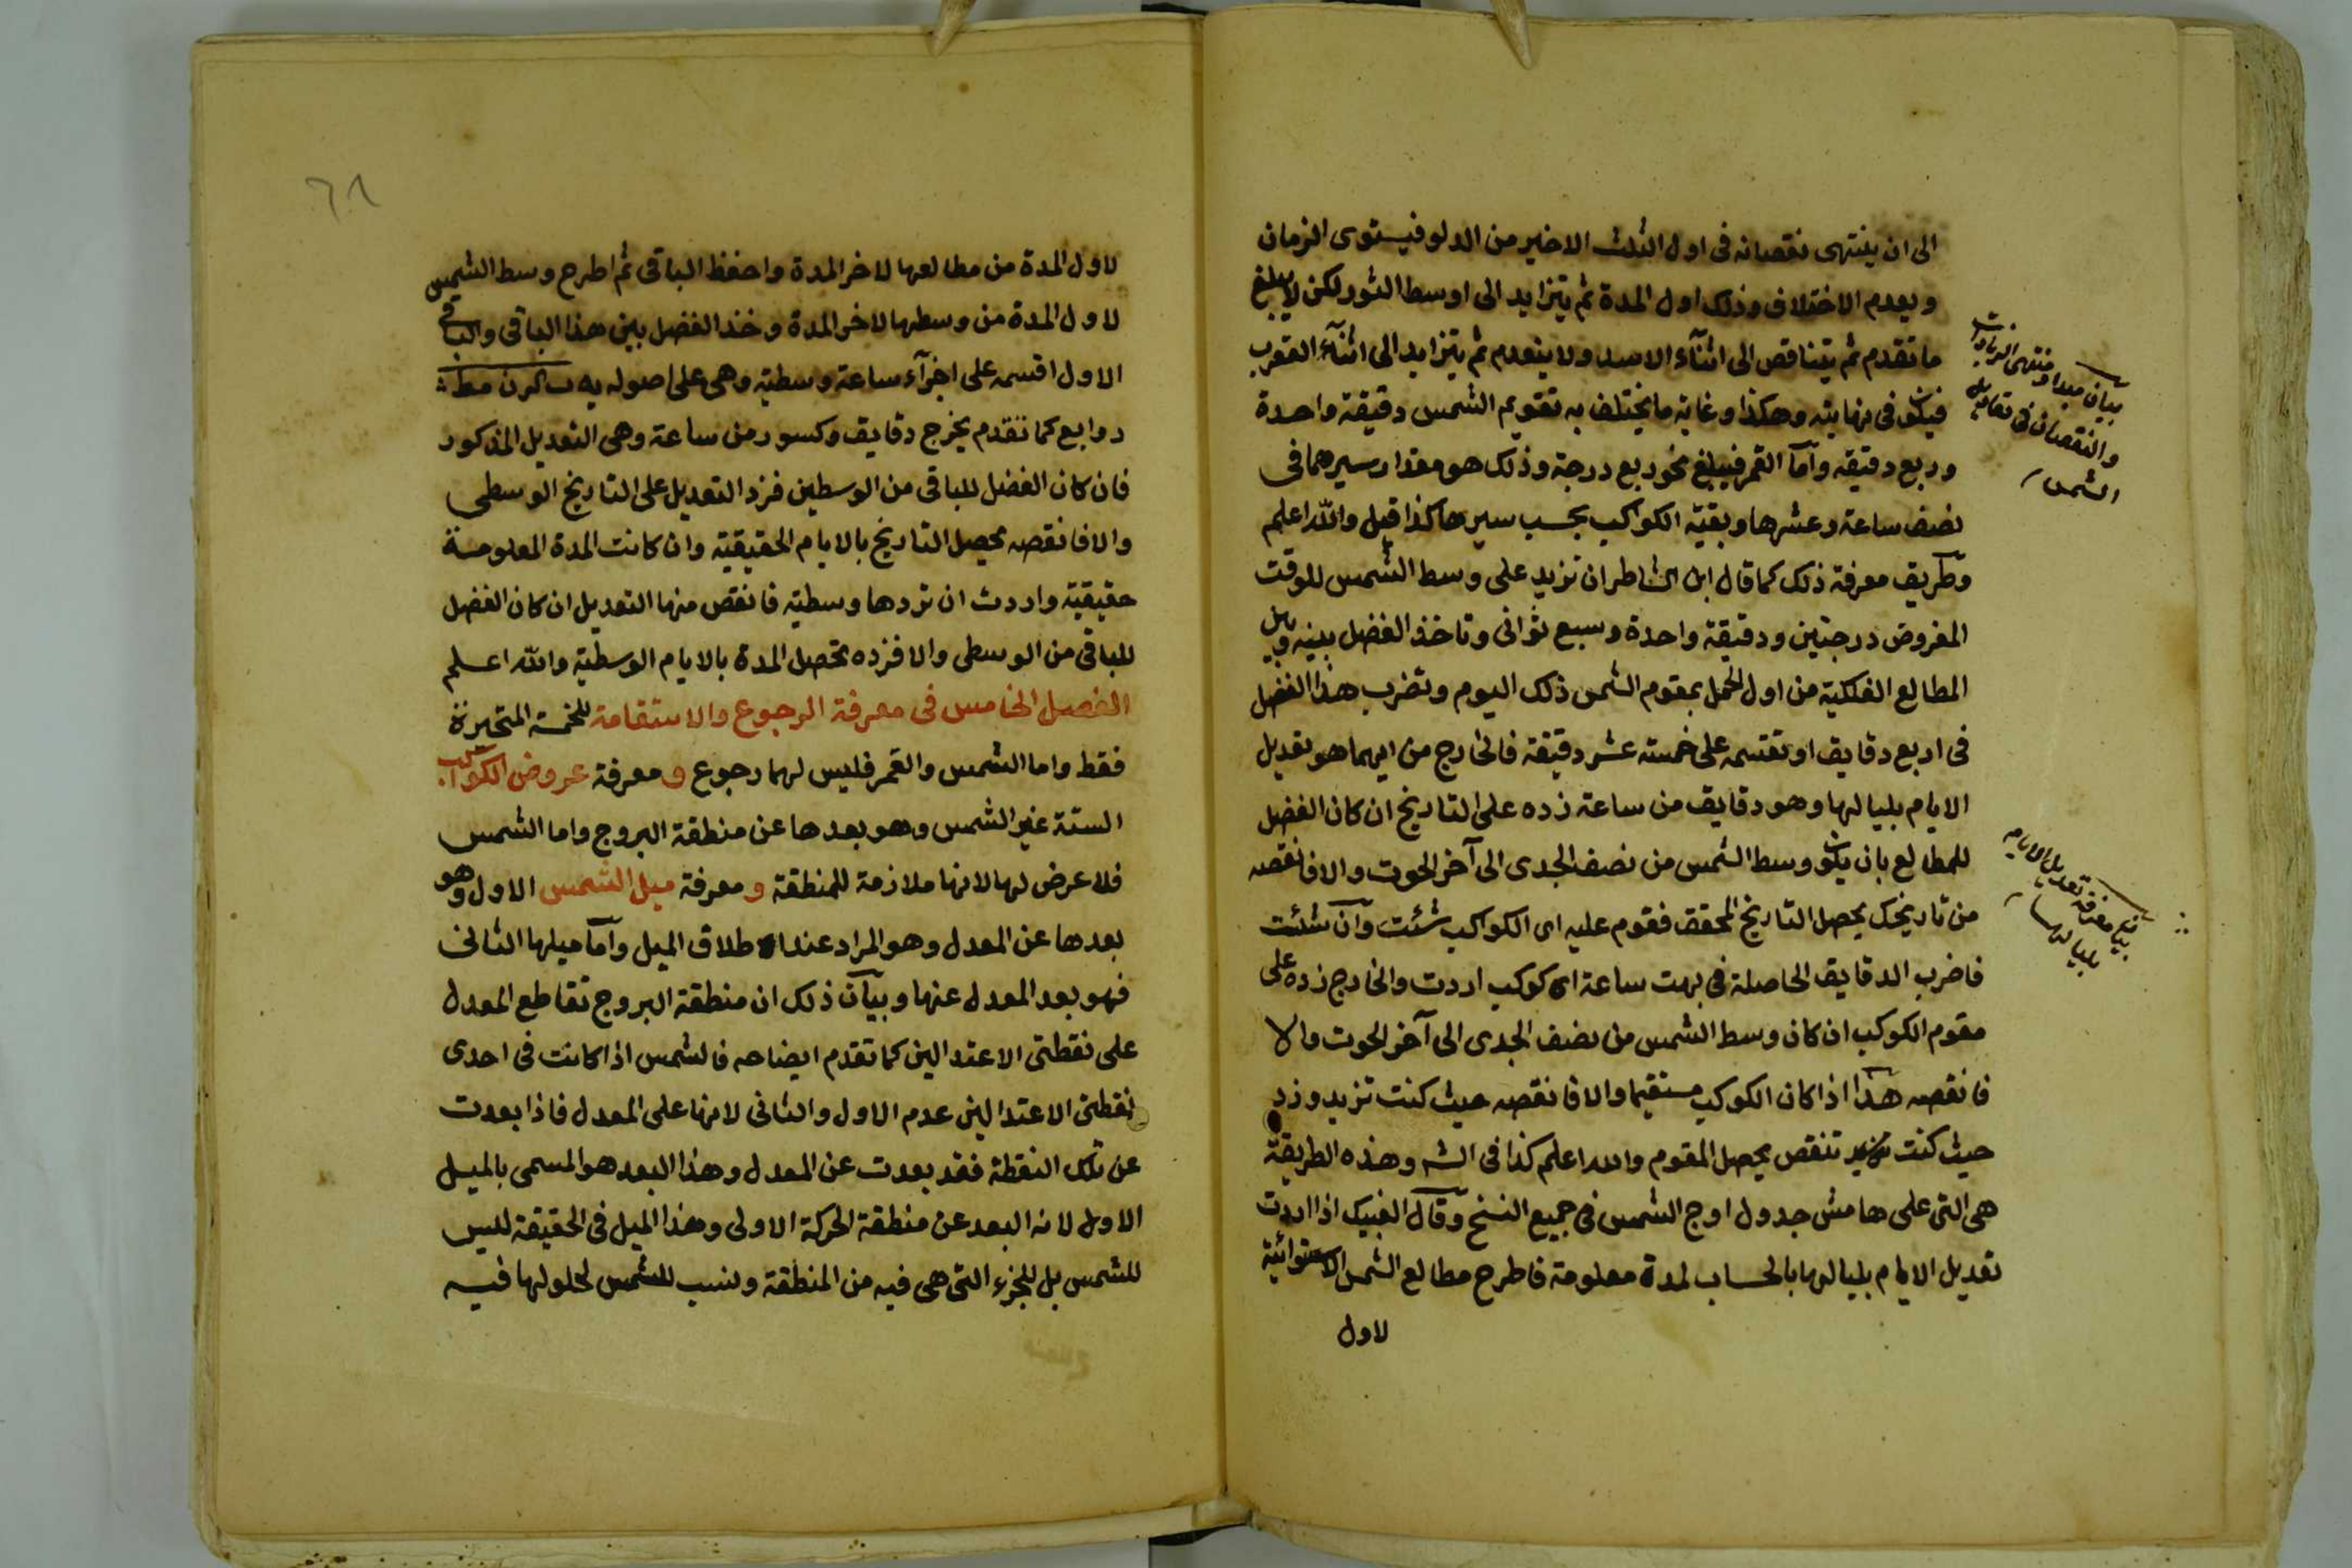 الى ان ينتهى نقصانه فى اول الثلث الاخير من الدلو فيستوى الزمان
ويعدم الاختلاف وذلك اول المدة ثم يتزايد الى اوسط الثور لكن لا يبلغ
ما تقدم ثم يتناقص الى اثنآء الاسد ولا ينعدم ثم يتزايد الى اثنآء العقرب
فيكون فى نهايته وهكذا وغاية ما يختلف به تقويم الشمس دقيقة واحدة
وربع دقيقه وآما القمر فيبلغ نحو ربع درجة وذلك هو مقدار سيرهما فى
نصف ساعة وعشرها وبقية الكواكب بحسب سيرها كذا قيل والله اعلم
وطريق معرفة ذلك كما قال ابن الشاطر ان تزيد على وسط الشمس للوقت
المفروض درجتين ودقيقة واحدة وسبع ثوانى وتاخذ الفضل بينه وبين
المطالع الفلكية من اول الحمل بمقوم الشمس ذلك اليوم وتضرب هذا الفضل
فى اربع دقايق او تقسمه على خمسته عشر دقيقة فالخارج من ايهما هو تعديل
الايام بلياليها وهو دقايق من ساعة زده على التاريخ ان كان الفضل
للمطالع بان يكون وسط الشمس من نصف الجدى الى آخر الحوت والا فانقصه
من تاريخك يحصل التاريخ المحقق فقوم عليه اى الكواكب شئت وآن شئت
فاضرب الدقايق الحاصلة فى بهت ساعة اى كوكب اردت والخارج زده على
مقوم الكوكب ان كان وسط الشمس من نصف الجدى الى آخر الحوت والا
فانقصه هذا اذا كان الكوكب مستقيما والا فانقصه حيث كنت تزيد وزد
حيث كنت تنقص يحصل المقوم والله اعلم كذا فى الشه وهذه الطريقة
هى التى على هامش جدول اوج الشمس فى جميع النسخ وقال الغبيك اذا اردت
تعديل الايام بلياليها بالحساب لمدة معلومة فاطرح مطالع الشمس الاستوائية
لاول
بيان مبدا ومنتهى الزيادات
والنقصان فى تعاديل
الشمس
بيان معرفة تعديل الايام
بلياليها
٦٨
لاول المدة من مطالعها لاخر المدة واحفظ الباقى ثم اطرح وسط الشمس
لاول المدة من وسطها لاخر المدة وخذ الفضل بين هذا الباقى والباقى
الاول اقسمه على اجزآء ساعة وسطية وهى على اصوله
روابع كما تقدم يخرج دقايق وكسور من ساعة وهى التعديل المذكور
فان كان الفضل للباقى من الوسطين فزد التعديل على التاريخ الوسطى
والا فانقصه يحصل التاريخ بالايام الحقيقية وان كانت المدة المعلومة
حقيقية واردت ان تردها وسطية فانقص منها التعديل ان كان الفضل
للباقى من الوسطى والا فزده تحصل المدة بالايام الوسطية والله اعلم
الفصل الخامس فى معرفة الرجوع والاستقامة للخمسة المتحيرة
فقط واما الشمس والقمر فليس لهما رجوع و معرفة عروض الكواكب
الستة غير الشمس وهو بعدها عن منطقة البروج واما الشمس
فلا عرض لها لانها ملازمة للمنطقة و معرفة ميل الشمس الاول وهو
بعدها عن المعدل وهو المراد عند اطلاق الميل وآما ميلها الثانى
فهو بعد المعدل عنها وبيآن ذلك ان منطقة البروج تقاطع المعدل
على نقطتى الاعتدالين كما تقدم ايضاحه فالشمس اذا كانت فى احدى
نقطتى الاعتدالين عدم الاول والثانى لانها على المعدل فاذا بعدت
عن تلك النقطة فقد بعدت عن المعدل وهذا البعد هو المسمى بالميل
الاول لانه البعد عن منطقة الحركة الاولى وهذا الميل فى الحقيقة لليس
للشمس بل للجزء التى هى فيه من المنطقة ونسب للشمس لحلولها فيه